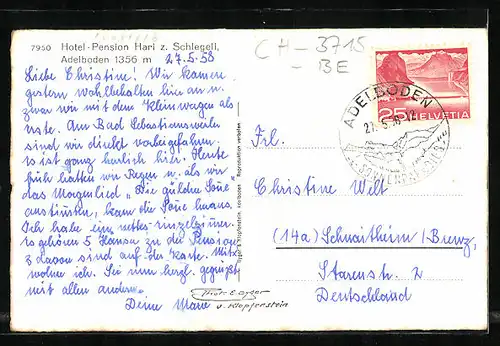 7950 Hotel-Pension Hari z. Schlegeli,
Adelboden 1356 m 27.5.58
CH-3715
-BE
Liebe Christine! Wir kamen
gestern wohlbehalten hier an u.
zwar wir mit dem Kleinwagen als
erste. Am Bad Sebastiansweiler
sind wir direkt vorbeigefahren.
Es ist ganz herrlich hier. Heute
früh hatten wir Regen u. als wir
das Morgenlied "Die güldne Sonne"
anstimmten, kam die Sonne heraus.
Ich habe ein nettes Einzelzimmer.
Es gehören 5 Häuser zu der Pension
3 davon sind auf der Karte.
wohne ich. Sei nun herzl. gegrüßt
mit allen anderen
Deine Marie
ADELBODEN
25 HELVETIA
Frl.
Christine Welt
(14a) Schnaitheim/Brenz,
Starenstr. 2
Deutschland
u. Klopfenstein